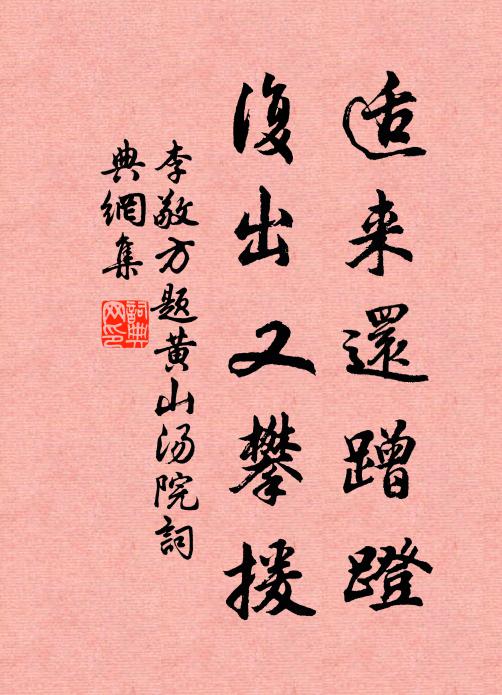 适来還蹭蹬
復出又攀援
李敬方题黄山汤院詞
典網集
詞典网印